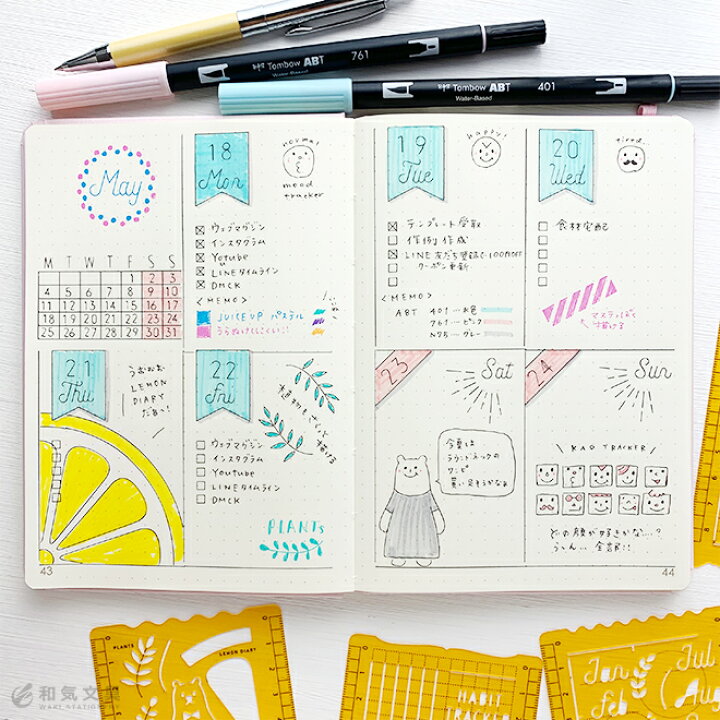 761
Tombow ABT
Water-Based
Tombow ABT
401
Water-Based
May
M T W T F S S
1 2 3
4 5 6 7 8 9 10
11 12 13 14 15 16 17
18 19 20 21 22 23 24
25 26 27 28 29 30 31
18
Mon
normal
mood
tracker
ウェブマガジン
インスタグラム
Yotube
LINEタイムライン
DMCK
<MEMO>
JUICE UP パステル
うらぬけしにくい!!
19
Tue
happy!
テンプレート受取
作例作成
LINE友だち登録で100円OFF
クーポン更新
<MEMO>
ABT 401…水色
761…ピンク
N75…グレー
20
Wed
tired..
食材宅配
マステっぽく
描ける
21
Thu
LEMON
DIARY
だぁっ!
22
Fri
植物もさくっと
描ける
ウェブマガジン
インスタグラム
Youtube
LINEタイムライン
DMCK
PLANTS
23
Sat
今夏は
ラウンドネックの
ワンピ
買い足そうかなぁ
24
Sun
KAO TRACKER
どの顔が好きかな…?
うーん… 全部!!
43
44
PLANTS
LEMON DIARY
HABIT
TRACKER
Jan
Feb
Jul
Aug
和気文具
WAKI STATIONERY